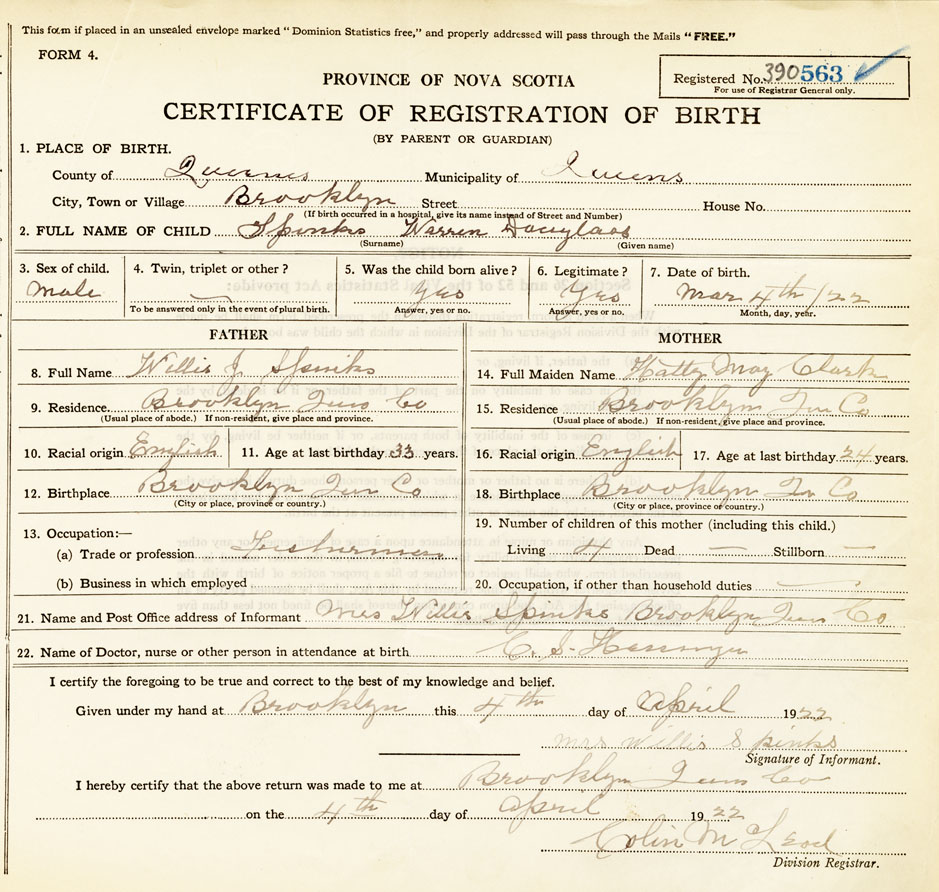 This form if placed in an unsealed envelope marked "Dominion Statistics free," and properly addressed will pass through the Mails "FREE."
FORM 4.
Registered No. 390563
For use of Registrar General only.
PROVINCE OF NOVA SCOTIA
CERTIFICATE OF REGISTRATION OF BIRTH
(BY PARENT OR GUARDIAN)
1. PLACE OF BIRTH.
County of Queens Municipality of Queens
City, Town or Village Brooklyn Street House No.
(If birth occurred in a hospital, give its name instead of Street and Number)
2. FULL NAME OF CHILD Spinks Warren Douglas
(Surname) (Given name)
3. Sex of child. 4. Twin, triplet or other? 5. Was the child born alive? 6. Legitimate? 7. Date of birth.
Male — Yes Yes Mar 4th/22
To be answered only in the event of plural birth. Answer, yes or no. Answer, yes or no. Month, day, year.
FATHER MOTHER
8. Full Name Willis J Spinks 14. Full Maiden Name Hatty May Clark
9. Residence. Brooklyn Quns Co 15. Residence Brooklyn Qun Co
(Usual place of abode.) If non-resident, give place and province. (Usual place of abode.) If non-resident, give place and province.
10. Racial origin English 11. Age at last birthday 33 years. 16. Racial origin English 17. Age at last birthday 24 years.
12. Birthplace Brooklyn Qun Co 18. Birthplace Brooklyn Qn Co
(City or place, province or country.) (City or place, province or country.)
13. Occupation:— 19. Number of children of this mother (including this child.)
(a) Trade or profession Fisherman Living 4 Dead — Stillborn —
(b) Business in which employed 20. Occupation, if other than household duties —
21. Name and Post Office address of Informant Mrs Willis Spinks Brooklyn Quns Co
22. Name of Doctor, nurse or other person in attendance at birth C. S.
I certify the foregoing to be true and correct to the best of my knowledge and belief.
Given under my hand at Brooklyn this 4th day of April 1922
Mrs Willis Spinks
Signature of Informant.
I hereby certify that the above return was made to me at Brooklyn Quns Co
on the 4th day of April 1922
Colin McLeod
Division Registrar.